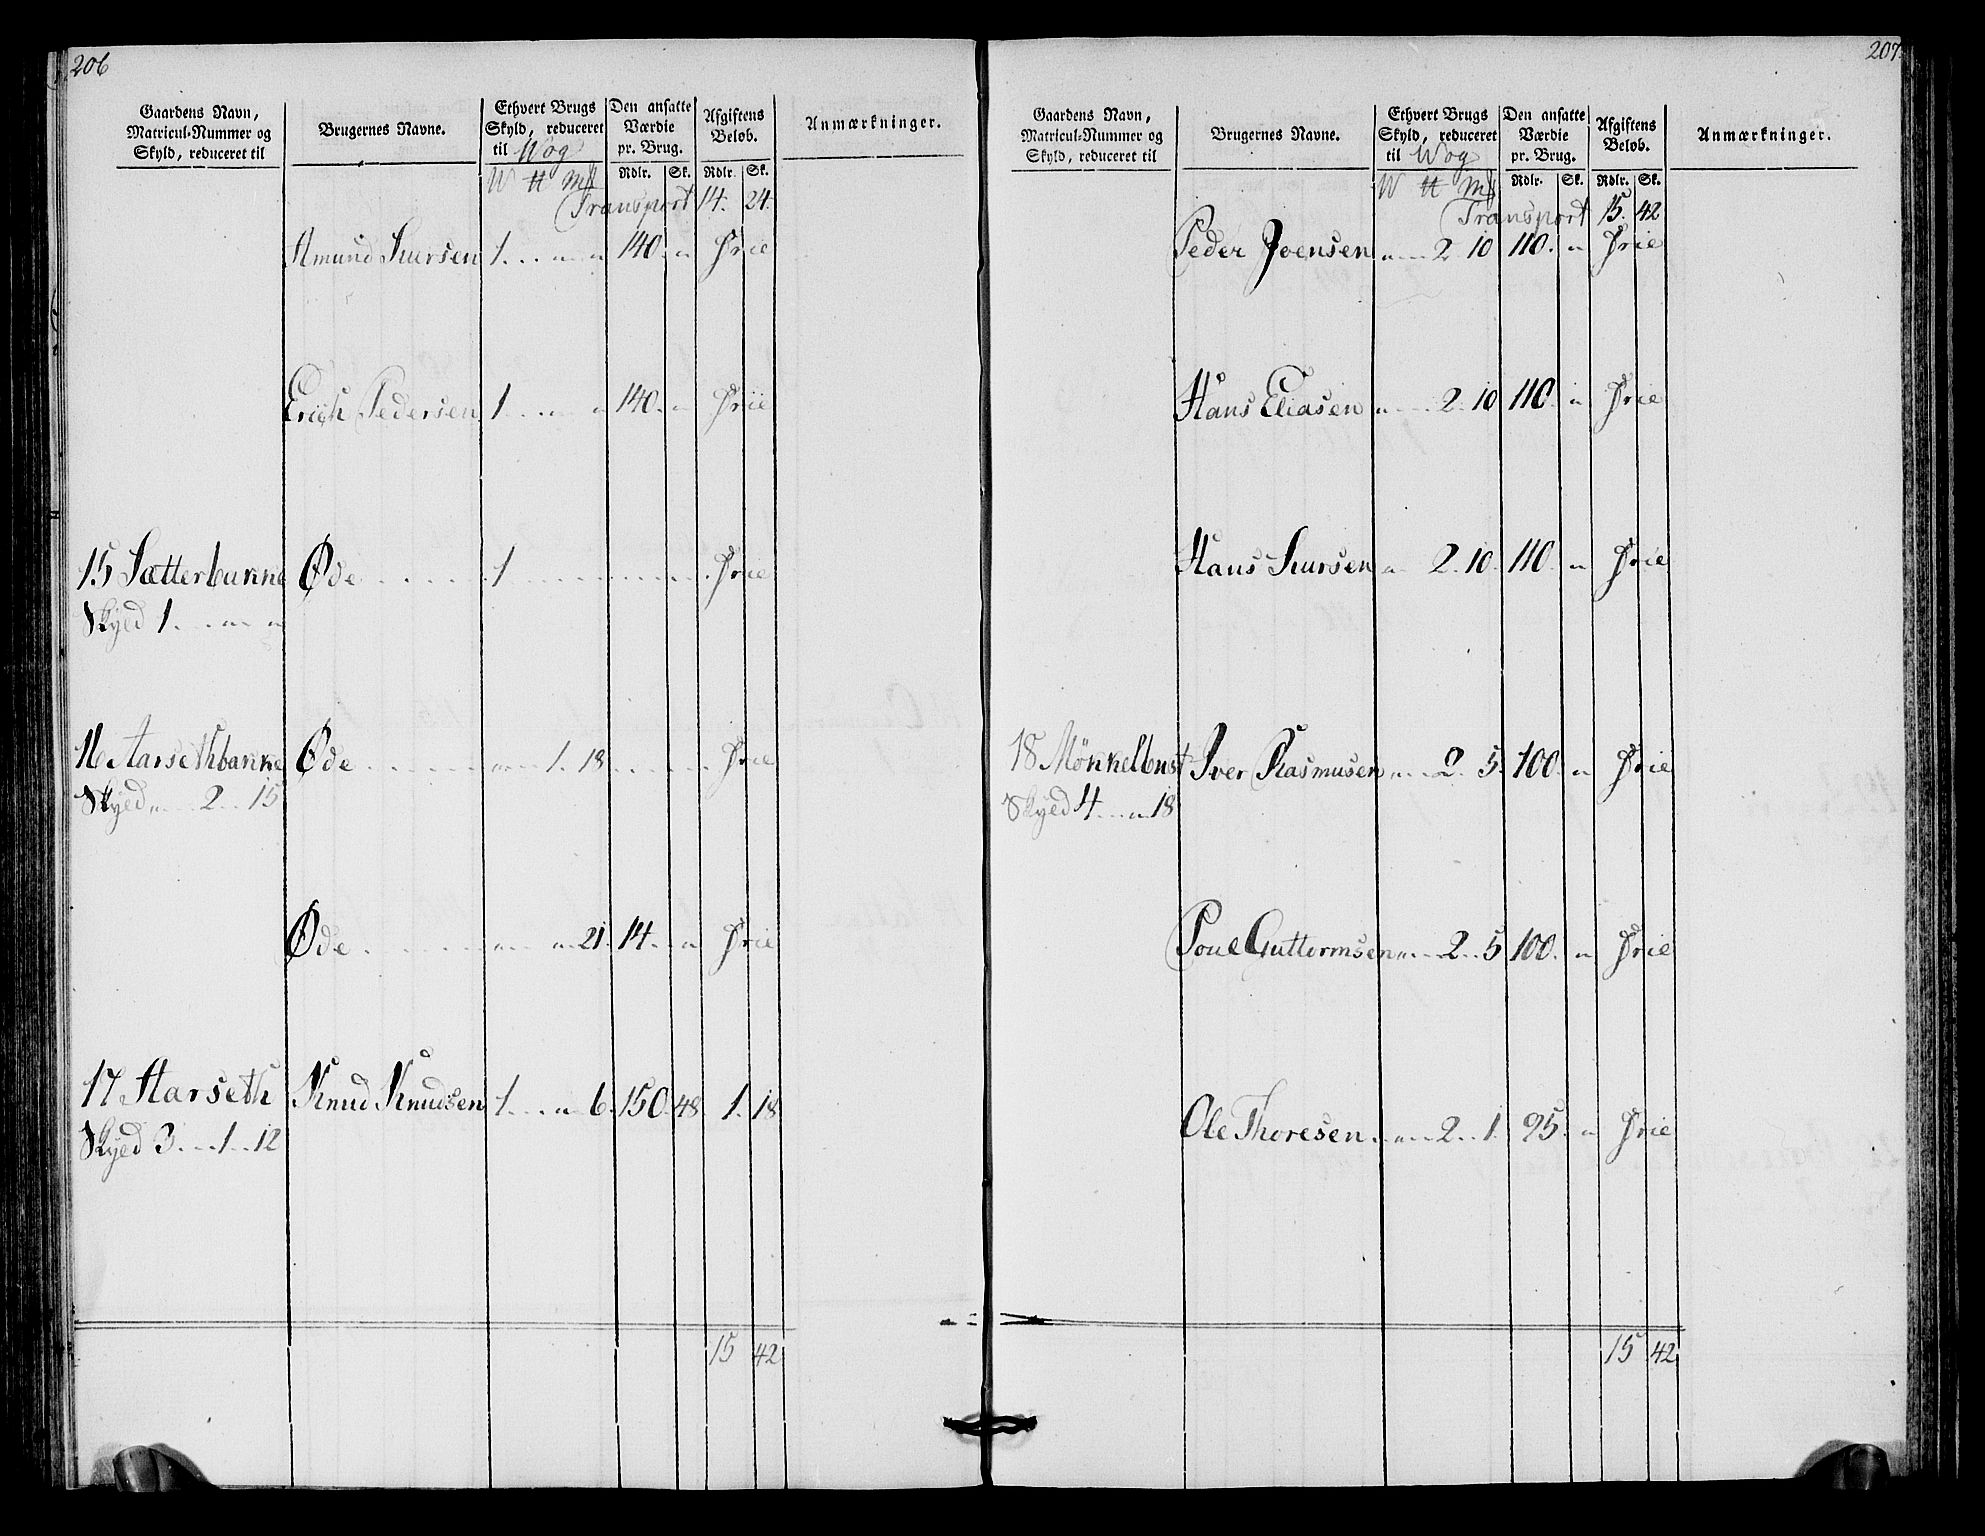 206
Gaardens Navn, Matricul-Nummer og Skyld, reduceret til
Brugernes Navne.
Ethvert Brugs Skyld, reduceret til Wog
Den ansatte Værdie pr. Brug.
Afgiftens Beløb.
Anmærkninger.
W ℔ Mk Rdlr. Sk. Rdlr. Sk.
Transport 14. 24.
Amund Siursen 1 . . „ . „ 140. „ Frie
Erich Pedersen 1 . . . „ . „ 140. „ Friie
15 Sætterbakke Øde . . . . . 1 . . . . . . . . Frie
Skyld 1. . . „ . . „
16 Aarsethbakke Øde . . . . . „ . 1. 18 . . . . . Frie
Skyld „ . . . 2 . . 15
Øde . . . . . . „ . . „ . 21. 14. . „ Frie
17 Aarseth Knud Knudsen 1. . . „ . 6. 150. 48 1. 18
Skyld 3. . . 1 . . 12
15 42
207.
Gaardens Navn, Matricul-Nummer og Skyld, reduceret til
Brugernes Navne.
Ethvert Brugs Skyld, reduceret til Wog
Den ansatte Værdie pr. Brug.
Afgiftens Beløb.
Anmærkninger.
W ℔ Mk Rdlr. Sk. Rdlr. Sk.
Transport 15. 42
Peder Joensen „ . . . 2 10 110. „ Frie
Hans Eliasen „ . . . 2. 10 110. „ Frie
Hans Siursen „ . . 2. 10. 110. „ Frie
18 Mönkelbust Iver Rasmusen „ . . . 2. 5. 100. „ Frie
Skyld 4. . . „ . 18
Poul Guttormsen „ . . . 2 . . 5 100. „ Frie
Ole Thoresen. . „ . . . 2 . . 1. 95. „ Frie
15 42